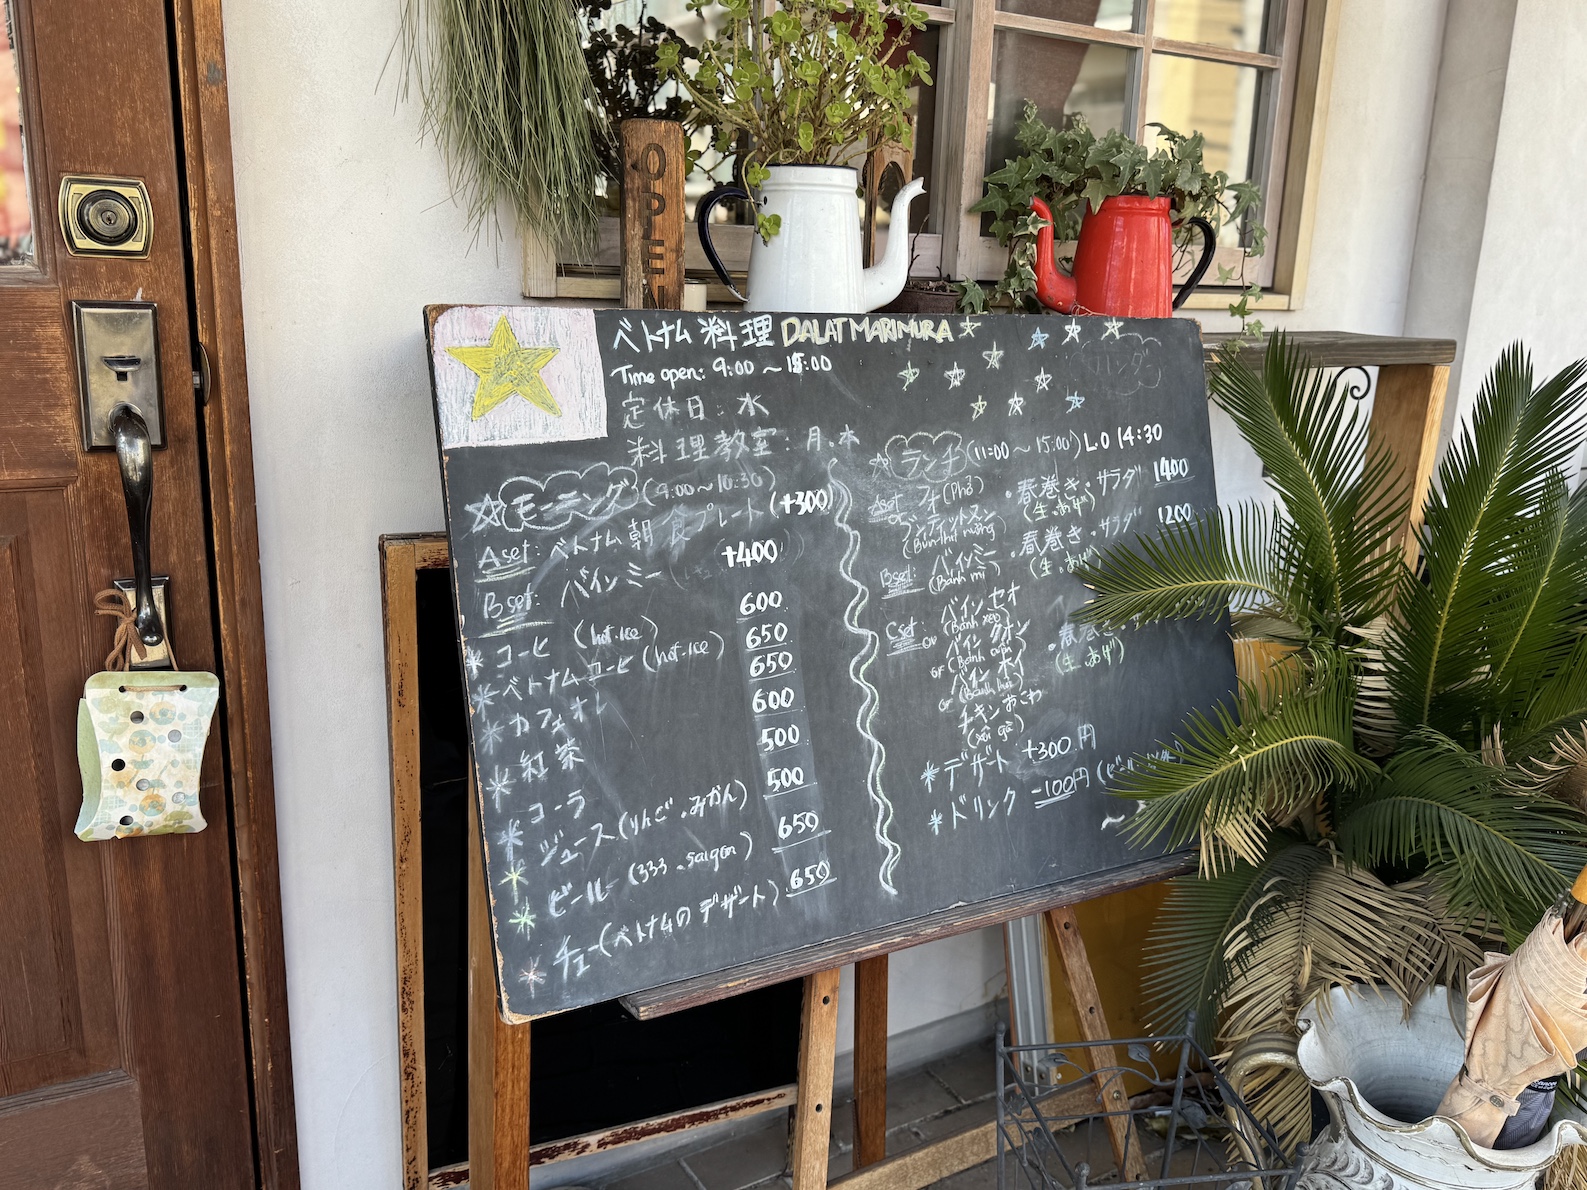 OPEN
ベトナム料理 DALAT MARIMURA
Time open: 9:00 〜 15:00
定休日: 水
料理教室: 月.木
モーニング (9:00〜10:30)
Aset: ベトナム朝食プレート (+300)
Bset: バインミー +400
* コーヒ (hot.Ice) 600
* ベトナムコーヒ (hot.Ice) 650
* カフェオレ 650
* 紅茶 600
* コーラ 500
* ジュース (りんご.みかん) 500
* ビール (333.saigon) 650
* チェー (ベトナムのデザート) 650
ランチ (11:00〜15:00) L.O 14:30
Aset フォ (Phở) ・春巻き・サラダ 1400
or ブンティットヌン (生.あげ)
(Bún thịt nướng)
Bset: バインミー ・春巻き・サラダ 1200
(Bánh mì) (生.あげ)
Cset: バインセオ
(Bánh xèo)
or バインクオン ・春巻き・
(Bánh cuốn) (生.あげ)
or バイン
チキンおこわ
(xôi gà)
* デザート +300円
* ドリンク -100円